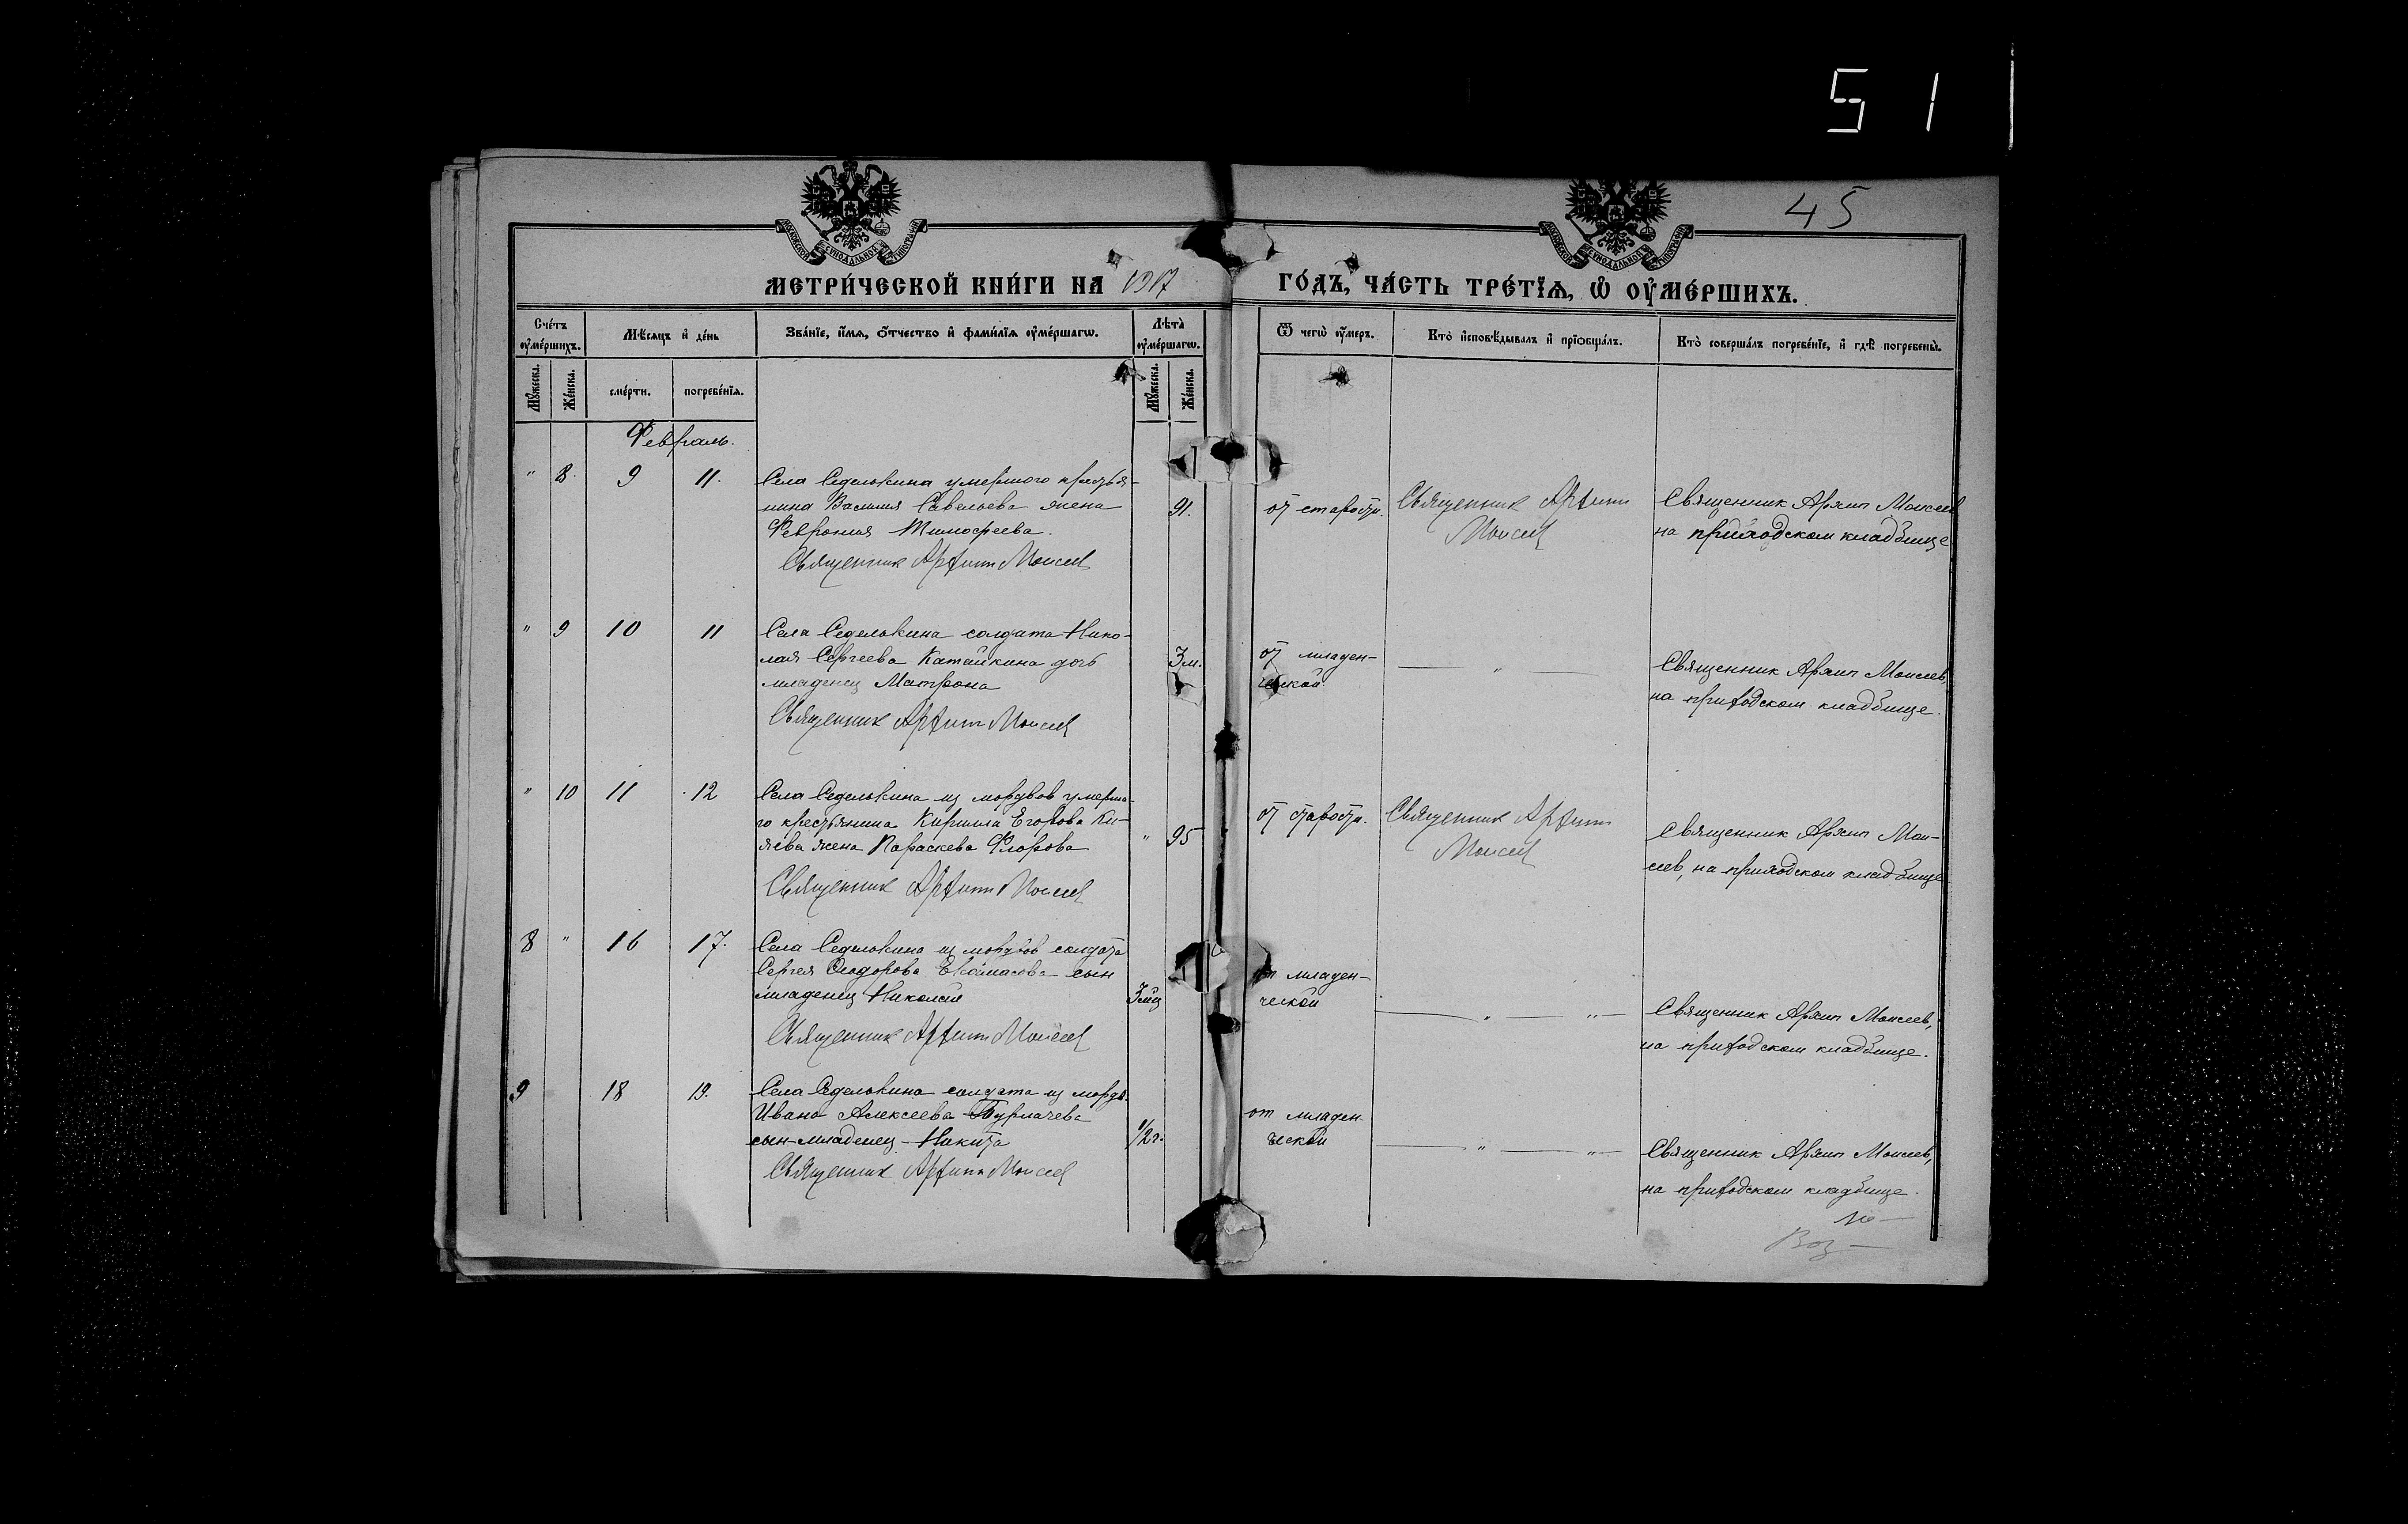 51
45
МЕТРИ́ЧЕСКОЙ КНИ́ГИ НА 1917 ГО́ДЪ, ЧА́СТЬ ТРЕ́ТЇѦ, Ѡ҆ ОУ҆МЕ́РШИХЪ.
Сче́тъ оу҆ме́ршихъ.
Мѣ́сяцъ и҆ де́нь
Зва́нїе, и҆́мѧ, ѻ҆́тчество и҆ фами́лїѧ оу҆ме́ршагѡ.
Лѣта̀ оу҆ме́ршагѡ.
Ѿ чегѡ̀ оу҆́меръ.
Кто̀ и҆сповѣ́дывалъ и҆ прїѻбща́лъ.
Кто̀ соверша́лъ погребе́нїе, и҆ гдѣ̀ погребены̀.
Мꙋ́жеска.
Же́нска.
сме́рти.
погребе́нїѧ.
Мꙋ́жеска.
Же́нска.
Февраль.
" 8. 9 11.
Села Седелькина умершого крестья-
нина Василия Савельева жена
Феврония Тимофеева.
Священник Архипп Моисеев
91.
от старости.
Священник Архипп
Моисеев
Священник Архип Моисеев
на приходском кладбище
" 9 10 11
Села Седелькина солдата Нико-
лая Сергеева Катайкина дочь
младенец Матрона
Священник Архипп Моисеев
3 м.
от младен-
ческой.
"
Священник Архип Моисеев,
на приходском кладбище.
" 10 11 12
Села Седелькина из мордвов умерша-
го крестьянина Кирилла Егорова Ки-
яева жена Параскева Флорова
Священник Архипп Моисеев
" 95
от старости.
Священник Архипп
Моисеев
Священник Архип Мои-
сеев, на приходском кладбище
8 " 16 17.
Села Седелькина из мордвов солдата
Сергея Феодорова сын
младенец Николай
Священник Архипп Моисеев
3 мц
от младен-
ческой
" "
Священник Архип Моисеев,
на приходском кладбище.
9 18 19.
Села Седелькина солдата из мордв.
Ивана Алексеева Бурлачева
сын-младенец-Никита
Священник Архипп Моисеев
1/2 г.
от младен
ческой
" "
Священник Архип Моисеев,
на приходском кладбище.